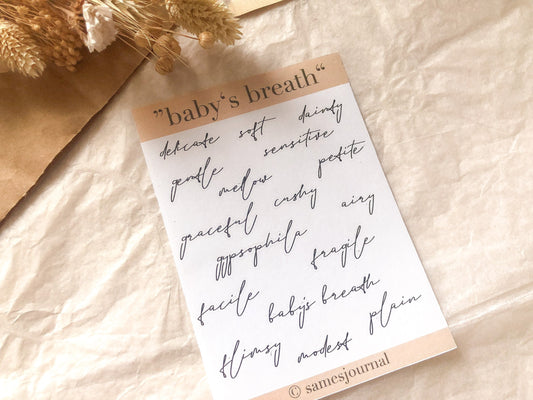 ”baby‘s breath“
delicate soft dainty
gentle sensitive
mellow petite
graceful cushy airy
gypsophila fragile
facile baby's breath
flimsy modest plain
© samesjournal